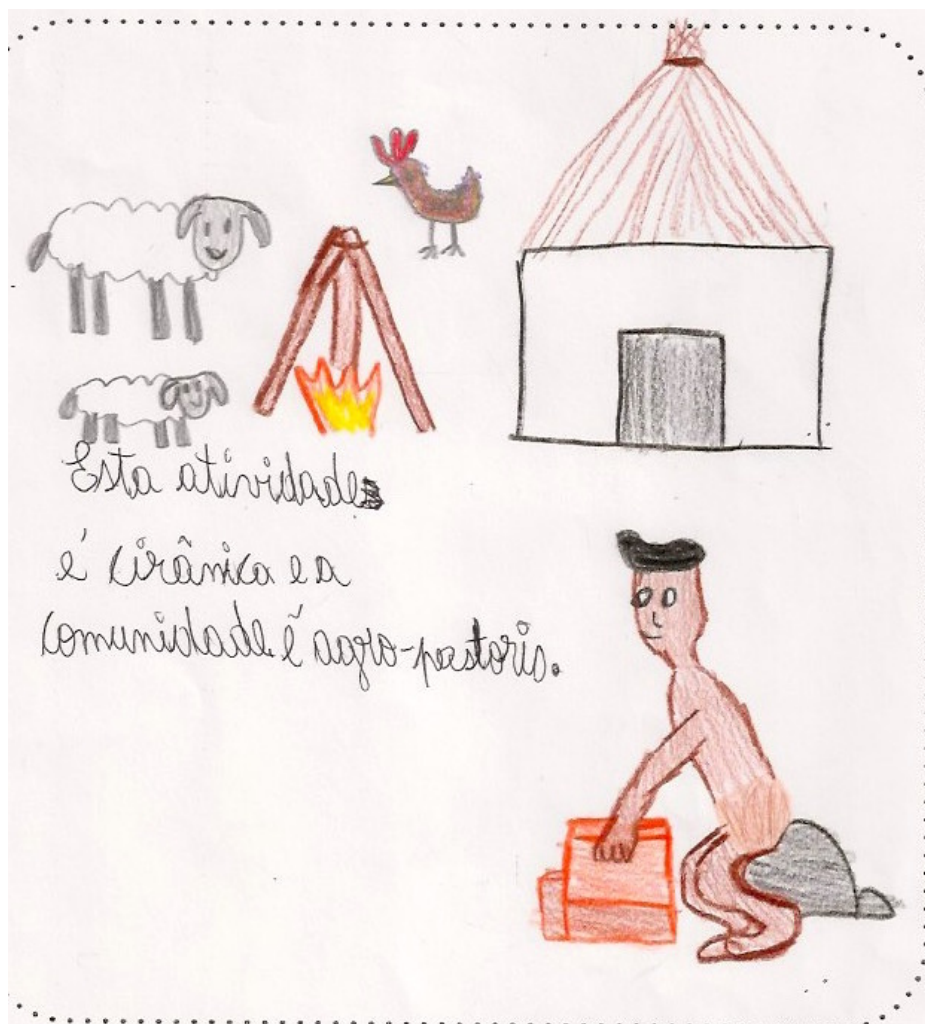 Esta atividade
é cirânica e a
comunidade é agro-pastoris.